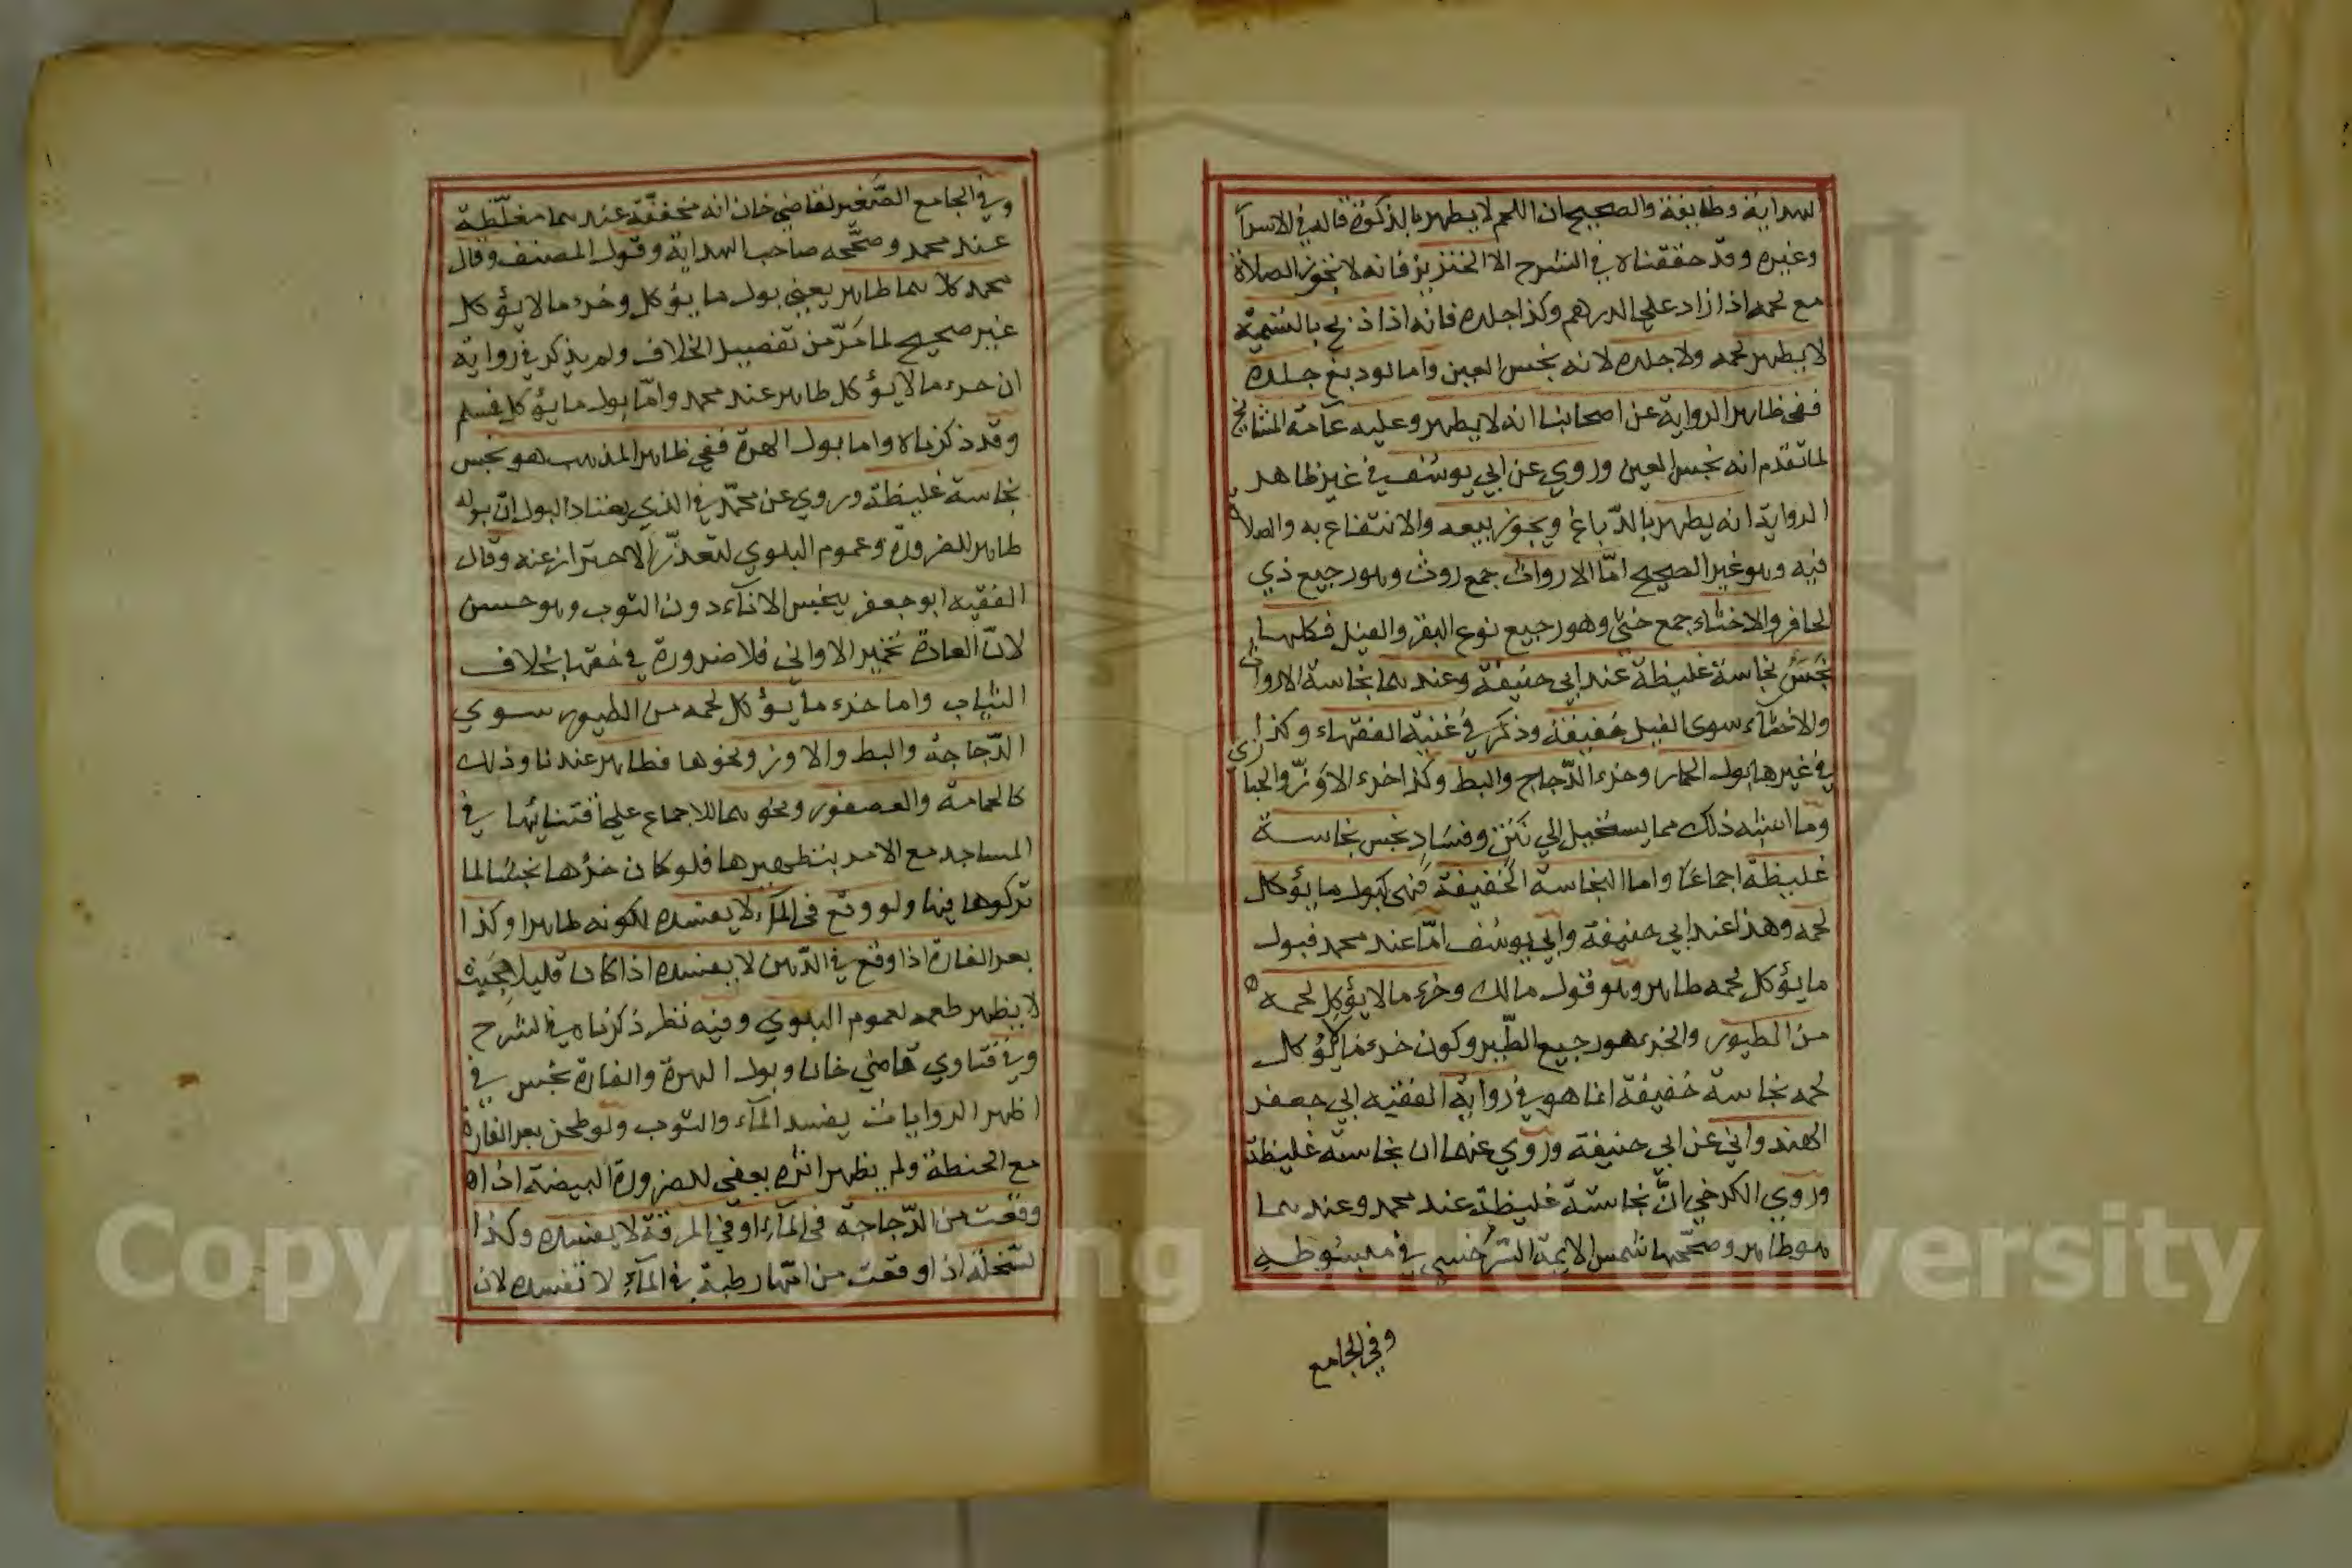 الهداية وطايفة والصحيح ان اللحم لا يطهر بالذكوة قاله في الاسرار
وغيره وقد حققناه في الشرح الا الخنزير فانه لا تجوز الصلاة
مع لحمه اذا زاد على الدرهم وكذا جلده فانه اذا ذبح بالتسمية
لا يطهر لحمه ولا جلده لانه نجس العين واما لو دبغ جلده
ففي ظاهر الرواية عن اصحابنا انه لا يطهر وعليه عامة المشايخ
لما تقدم انه نجس العين وروي عن ابي يوسف في غير ظاهر
الرواية انه يطهر بالدّباغ ويجوز بيعه والانتفاع به والصلاة
فيه وهو غير الصحيح امّا الارواث جمع روث وهو رجيع ذي
الحافر والاخثاء جمع خثي وهو رجيع نوع البقر والفيل فكلها
نجسٌ نجاسة غليظة عند ابي حنيفة وعندهما نجاسة الارواث
والاخثآء سوى الفيل خفيفة وذكر في غنية الفقهاء وكذا
في غيرها بول الحمار وخرء الدّجاج والبط وكذا خرء الاوزّ والحبارى
وما اشبه ذلك مما يستحيل الي نتن وفساد نجس نجاسة
غليظة اجماعًا واما النجاسة الخفيفة فهي كبول ما يؤكل
لحمه وهذا عند ابي حنيفة وابي يوسف امّا عند محمد فبول
ما يؤكل لحمه طاهر وهو قول مالك وخرء ما لا يؤكل لحمه
من الطيور والخرء هو رجيع الطّير وكون خرء ما لا يؤكل
لحمه نجاسة خفيفة انما هو في رواية الفقيه ابي جعفر
الهندواني عن ابي حنيفة وروي عنهما ان نجاسته غليظة
وروي الكرخي انّ نجاسته غليظة عند محمد وعندهما
هو طاهر وصحّحها شمس الايمة السّرخسي في مبسوطه
وفي الجامع
وفي الجامع الصّغير لقاضي خان انه مخففة عندهما مغلّظة
عند محمد وصحّحه صاحب الهداية وقول المصنف وقال
محمد كلاهما طاهر يعني بول ما يؤكل وخرء ما لا يؤكل
غير صحيح لما مَرّ من تفصيل الخلاف ولم يذكر في رواية
ان خرء ما لا يؤكل طاهر عند محمد وامّا بول ما يؤكل فسلم
وقد ذكرناه واما بول الهرة ففي ظاهر المذهب هو نجس
نجاسة غليظة وروي عن محمّد في الذي يعتاد البول انّ بوله
طاهر للضرورة وعموم البلوي لتعذّر الاحتراز عنه وقال
الفقيه ابو جعفر ينجس الانآء دون الثوب وهو حسن
لانّ العادة تخمير الاواني فلا ضرورة في حقها بخلاف
الثياب واما خرء ما يؤكل لحمه من الطيور سوي
الدّجاجة والبط والاوز ونحوها فطاهر عندنا وذلك
كالحمامة والعصفور ونحوهما للاجماع على اقتنائها في
المساجد مع الامر بتطهيرها فلو كان خرؤها نجسًا لما
تركوها فيها ولو وقع في المآء لا يفسده لكونه طاهرا وكذا
بعر الفارة اذا وقع في الدّهن لا يفسده اذا كان قليلا بحيث
لا يظهر طعمه لعموم البلوي وفيه نظر ذكرناه في الشرح
وفي فتاوي قاضي خان وبول الهرة والفارة نجس في
اظهر الروايات يفسد المآء والثوب ولو طحن بعر الفارة
مع الحنطة ولم يظهر اثره يعفي للضرورة البيضة اذا
وقعت من الدّجاجة في المآء او في المرقة لا يفسده وكذا
السّخلة اذا وقعت من امّها رطبة في المآء لا تفسده لان